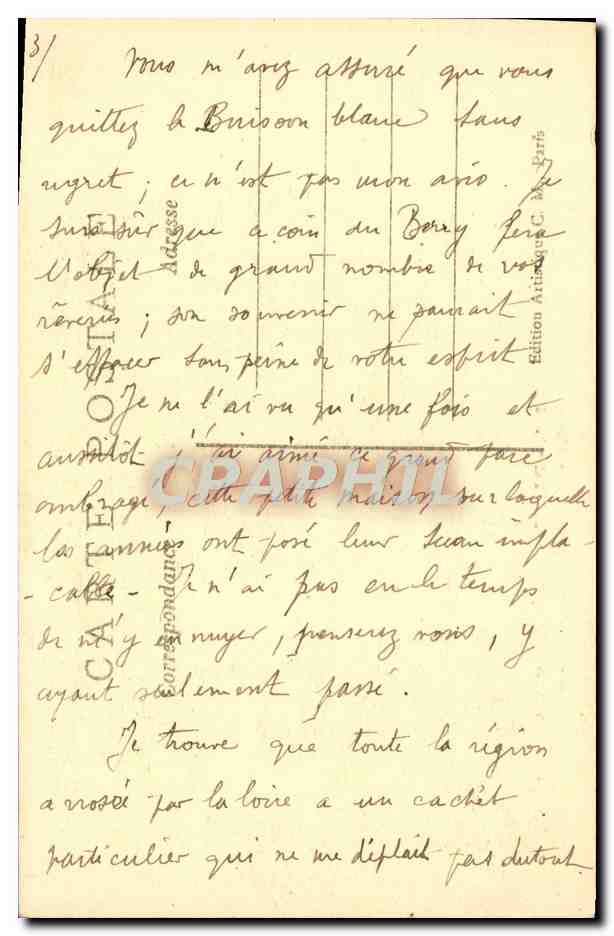 3/
Vous m'avez assuré que vous
quittez le Buisson blanc sans
regret ; ce n'est pas mon avis. Je
suis sûr que ce coin du Berry fera
l'objet de grand nombre de vos
rêveries ; son souvenir ne pourait
s'effacer sans peine de votre esprit
Je ne l'ai vu qu'une fois et
aussitôt j'ai aimé ce grand parc
ombragé, cette petite maison sur laquelle
les années ont posé leur sceau impla-
-cable - Je n'ai pas eu le temps
de m'y ennuyer, penserez vous, y
ayant seulement passé.
Je trouve que toute la région
arrosée par la loire a un cachet
particulier qui ne me déplait pas dutout
CARTE POSTALE
Correspondance
Adresse
Edition Artistique C. M. Paris
CPAPHIL